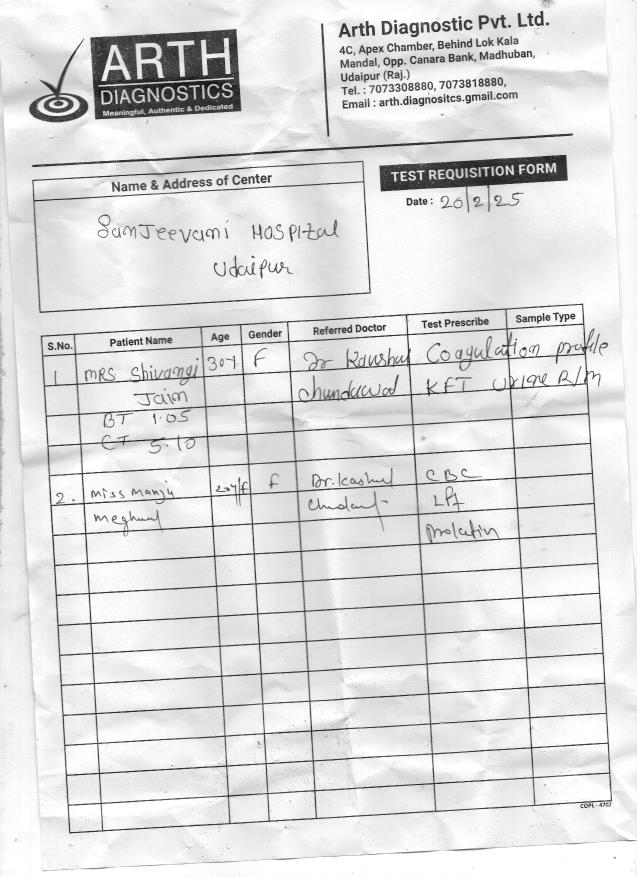 ARTH
DIAGNOSTICS
Meaningful, Authentic & Dedicated
Arth Diagnostic Pvt. Ltd.
4C, Apex Chamber, Behind Lok Kala
Mandal, Opp. Canara Bank, Madhuban,
Udaipur (Raj.)
Tel. : 7073308880, 7073818880,
Email : arth.diagnositcs.gmail.com
Name & Address of Center
TEST REQUISITION FORM
Date : 20/2/25
SanJeevani HOSPItal
Udaipur
S.No. Patient Name Age Gender Referred Doctor Test Prescribe Sample Type
1 MRS Shivangi 30y F Dr Kaushal Coagulation profile
Jain Chundawad KFT Urine R/M
BT 1.05
CT 5.10
2. Miss Manju 20y/f f Dr. Kashul CBC
Meghwal LH
Prolatin
COPL - 4707